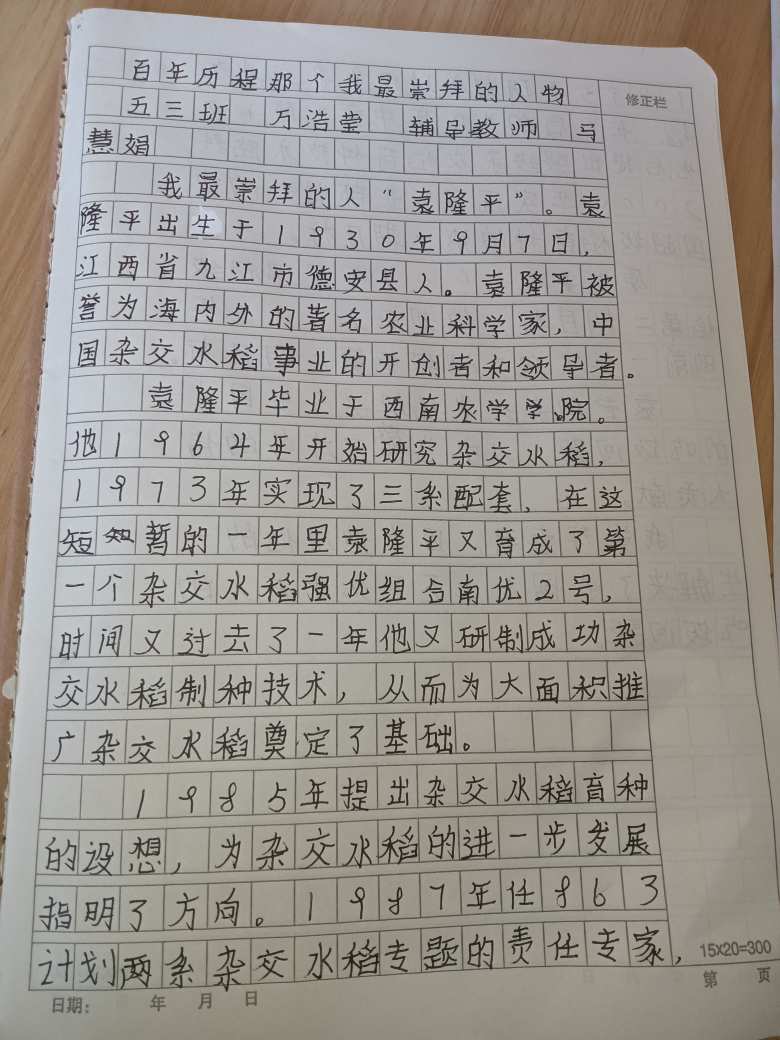 百年历程那个我最崇拜的人物
修正栏
五三班 万浩莹 辅导教师 马
慧娟
我最崇拜的人“袁隆平”。袁
隆平出生于1930年9月7日,
江西省九江市德安县人。袁隆平被
誉为海内外的著名农业科学家,中
国杂交水稻事业的开创者和领导者。
袁隆平毕业于西南农学学院。
他1964年开始研究杂交水稻,
1973年实现了三系配套,在这
短知暂的一年里袁隆平又育成了第
一个杂交水稻强优组合南优2号,
时间又过去了一年他又研制成功杂
交水稻制种技术,从而为大面积推
广杂交水稻奠定了基础。
1985年提出杂交水稻育种
的设想,为杂交水稻的进一步发展
指明了方向。1987年任863
计划两系杂交水稻专题的责任专家,
15×20=300
日期: 年 月 日 第 页